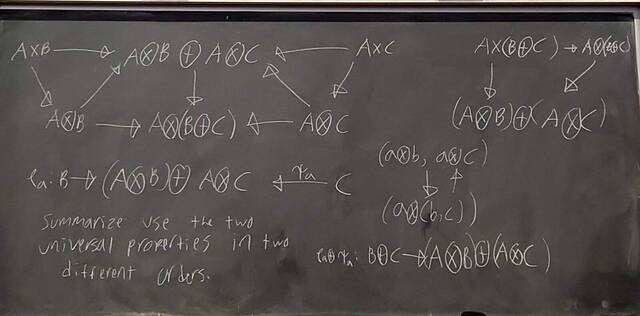 A×B → A⊗B ⊕ A⊗C ← A×C
A⊗B → A⊗(B⊕C) ← A⊗C
A×(B⊕C) → A⊗(B⊕C)
(A⊗B)⊕(A⊗C)
(a⊗b, a⊗c)
(a⊗(b,c))
φa: B → (A⊗B)⊕ A⊗C ←ψa C
Summarize use the two
universal properties in two
different orders.
φa⊕ψa: B⊕C → (A⊗B)⊕(A⊗C)